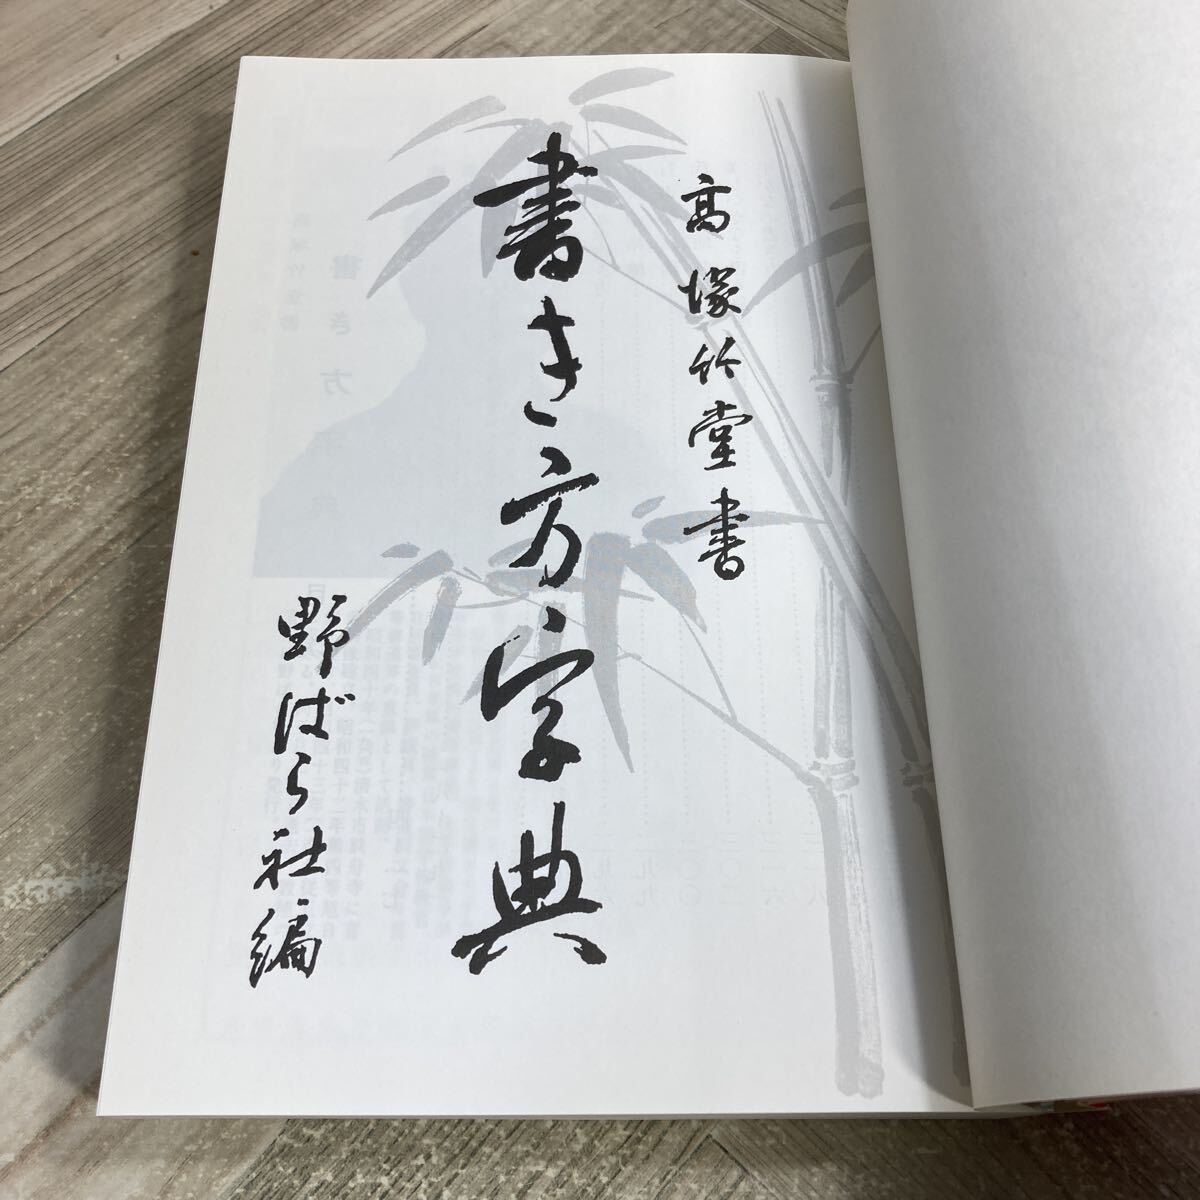 高塚竹堂書
書き方字典
野ばら社編